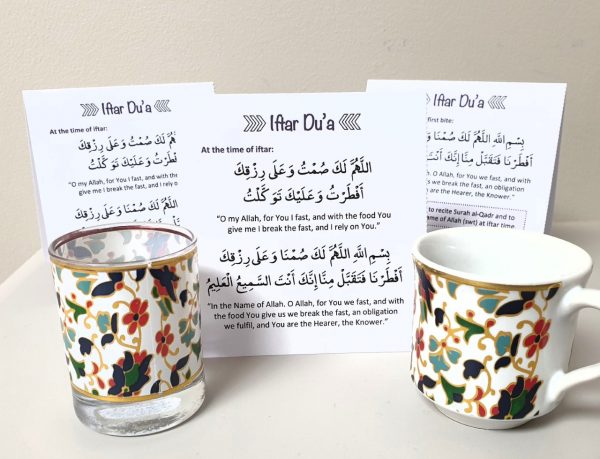 Iftar Du'a
At the time of iftar:
صُمْتُ وَعَلَى رِزْقِكَ
وَعَلَيْكَ تَوَكَّلْتُ
"O my Allah, for You I fast, and with
give me I break the fast, and I rely o
اللَّهُمَّ لَكَ صُمْنَا وَعَلَى
Iftar Du'a
At the time of iftar:
اللَّهُمَّ لَكَ صُمْتُ وَعَلَى رِزْقِكَ
أَفْطَرْتُ وَعَلَيْكَ تَوَكَّلْتُ
"O my Allah, for You I fast, and with the food You
give me I break the fast, and I rely on You."
بِسْمِ اللهِ اللَّهُمَّ لَكَ صُمْنَا وَعَلَى رِزْقِكَ
أَفْطَرْنَا فَتَقَبَّلْ مِنَّا إِنَّكَ أَنْتَ السَّمِيعُ الْعَلِيمُ
"In the Name of Allah. O Allah, for You we fast, and with
the food You give us we break the fast, an obligation
we fulfil, and You are the Hearer, the Knower."
Iftar Du'a
first bite:
بِسْمِ اللهِ اللَّهُمَّ لَكَ صُمْنَا وَ
أَفْطَرْنَا فَتَقَبَّلْ مِنَّا إِنَّكَ أَنْتَ
h. O Allah, for You we fast, and with
us we break the fast, an obligation
Hearer, the Knower."
to recite Surah al-Qadr and to
ame of Allah (swt) at iftar time